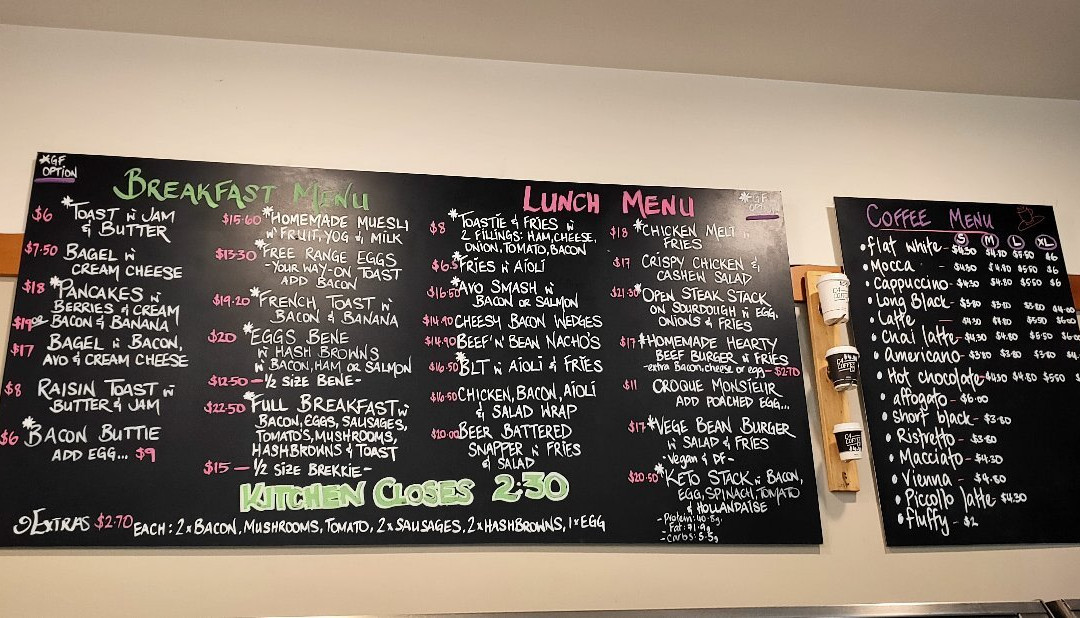 *GF
OPTION
BREAKFAST MENU
$6 *TOAST N JAM
& BUTTER
$7.50 BAGEL N
CREAM CHEESE
$18 *PANCAKES N
BERRIES & CREAM
BACON & BANANA
$17 BAGEL N BACON,
AVO & CREAM CHEESE
$8 RAISIN TOAST N
BUTTER & JAM
$6 *BACON BUTTIE
ADD EGG... $9
$15.60 *HOMEMADE MUESLI
N FRUIT, YOG & MILK
$13.30 *FREE RANGE EGGS
-YOUR WAY-ON TOAST
ADD BACON
$19.20 *FRENCH TOAST N
BACON & BANANA
$20 *EGGS BENE
N HASH BROWNS
N BACON, HAM OR SALMON
$12.50 - 1/2 SIZE BENE-
$22.50 *FULL BREAKFAST N
BACON, EGGS, SAUSAGES,
TOMATO'S, MUSHROOMS,
HASHBROWNS & TOAST
$15 - 1/2 SIZE BREKKIE-
LUNCH MENU
*GF
$8 *TOASTIE & FRIES N
2 FILLINGS: HAM, CHEESE,
ONION, TOMATO, BACON
*FRIES N AIOLI
$16.50 *AVO SMASH N
BACON OR SALMON
$14.90 CHEESY BACON WEDGES
$14.90 BEEF 'N' BEAN NACHO'S
$16.50 *BLT N AIOLI & FRIES
$16.50 CHICKEN, BACON, AIOLI
& SALAD WRAP
$20.00 BEER BATTERED
SNAPPER N FRIES
& SALAD
$18 *CHICKEN MELT N
FRIES
$17 CRISPY CHICKEN &
CASHEW SALAD
*OPEN STEAK STACK
ON SOURDOUGH N EGG,
ONIONS & FRIES
$17 *HOMEMADE HEARTY
BEEF BURGER N FRIES
-extra Bacon, cheese or egg- $2.70
$11 CROQUE MONSIEUR
ADD POACHED EGG...
$17 *VEGE BEAN BURGER
N SALAD & FRIES
-Vegan & DF-
$20.50 *KETO STACK N BACON,
EGG, SPINACH, TOMATO
& HOLLANDAISE
-Protein:
-Fat:
-Carbs: 5.5g
KITCHEN CLOSES 2:30
EXTRAS $2.70 EACH: 2xBACON, MUSHROOMS, TOMATO, 2xSAUSAGES, 2xHASHBROWNS, 1xEGG
COFFEE MENU
S M L XL
• flat white - $4.30 $4.80 $5.50 $6
• Mocca - $4.80 $5.50 $6
• Cappuccino - $4.30 $4.80 $5.50 $6
• Long Black -
• Latte - $4.30 $4.80 $5.50
• Chai latte - $4.30 $4.80 $5.50
• Americano -
• Hot chocolate - $4.30 $4.80 $5.50
• affogato - $6.00
• short black - $3.80
• Ristretto - $3.80
• Macciato - $4.30
• Vienna - $4.80
• Picollo latte $4.30
• fluffy - $2